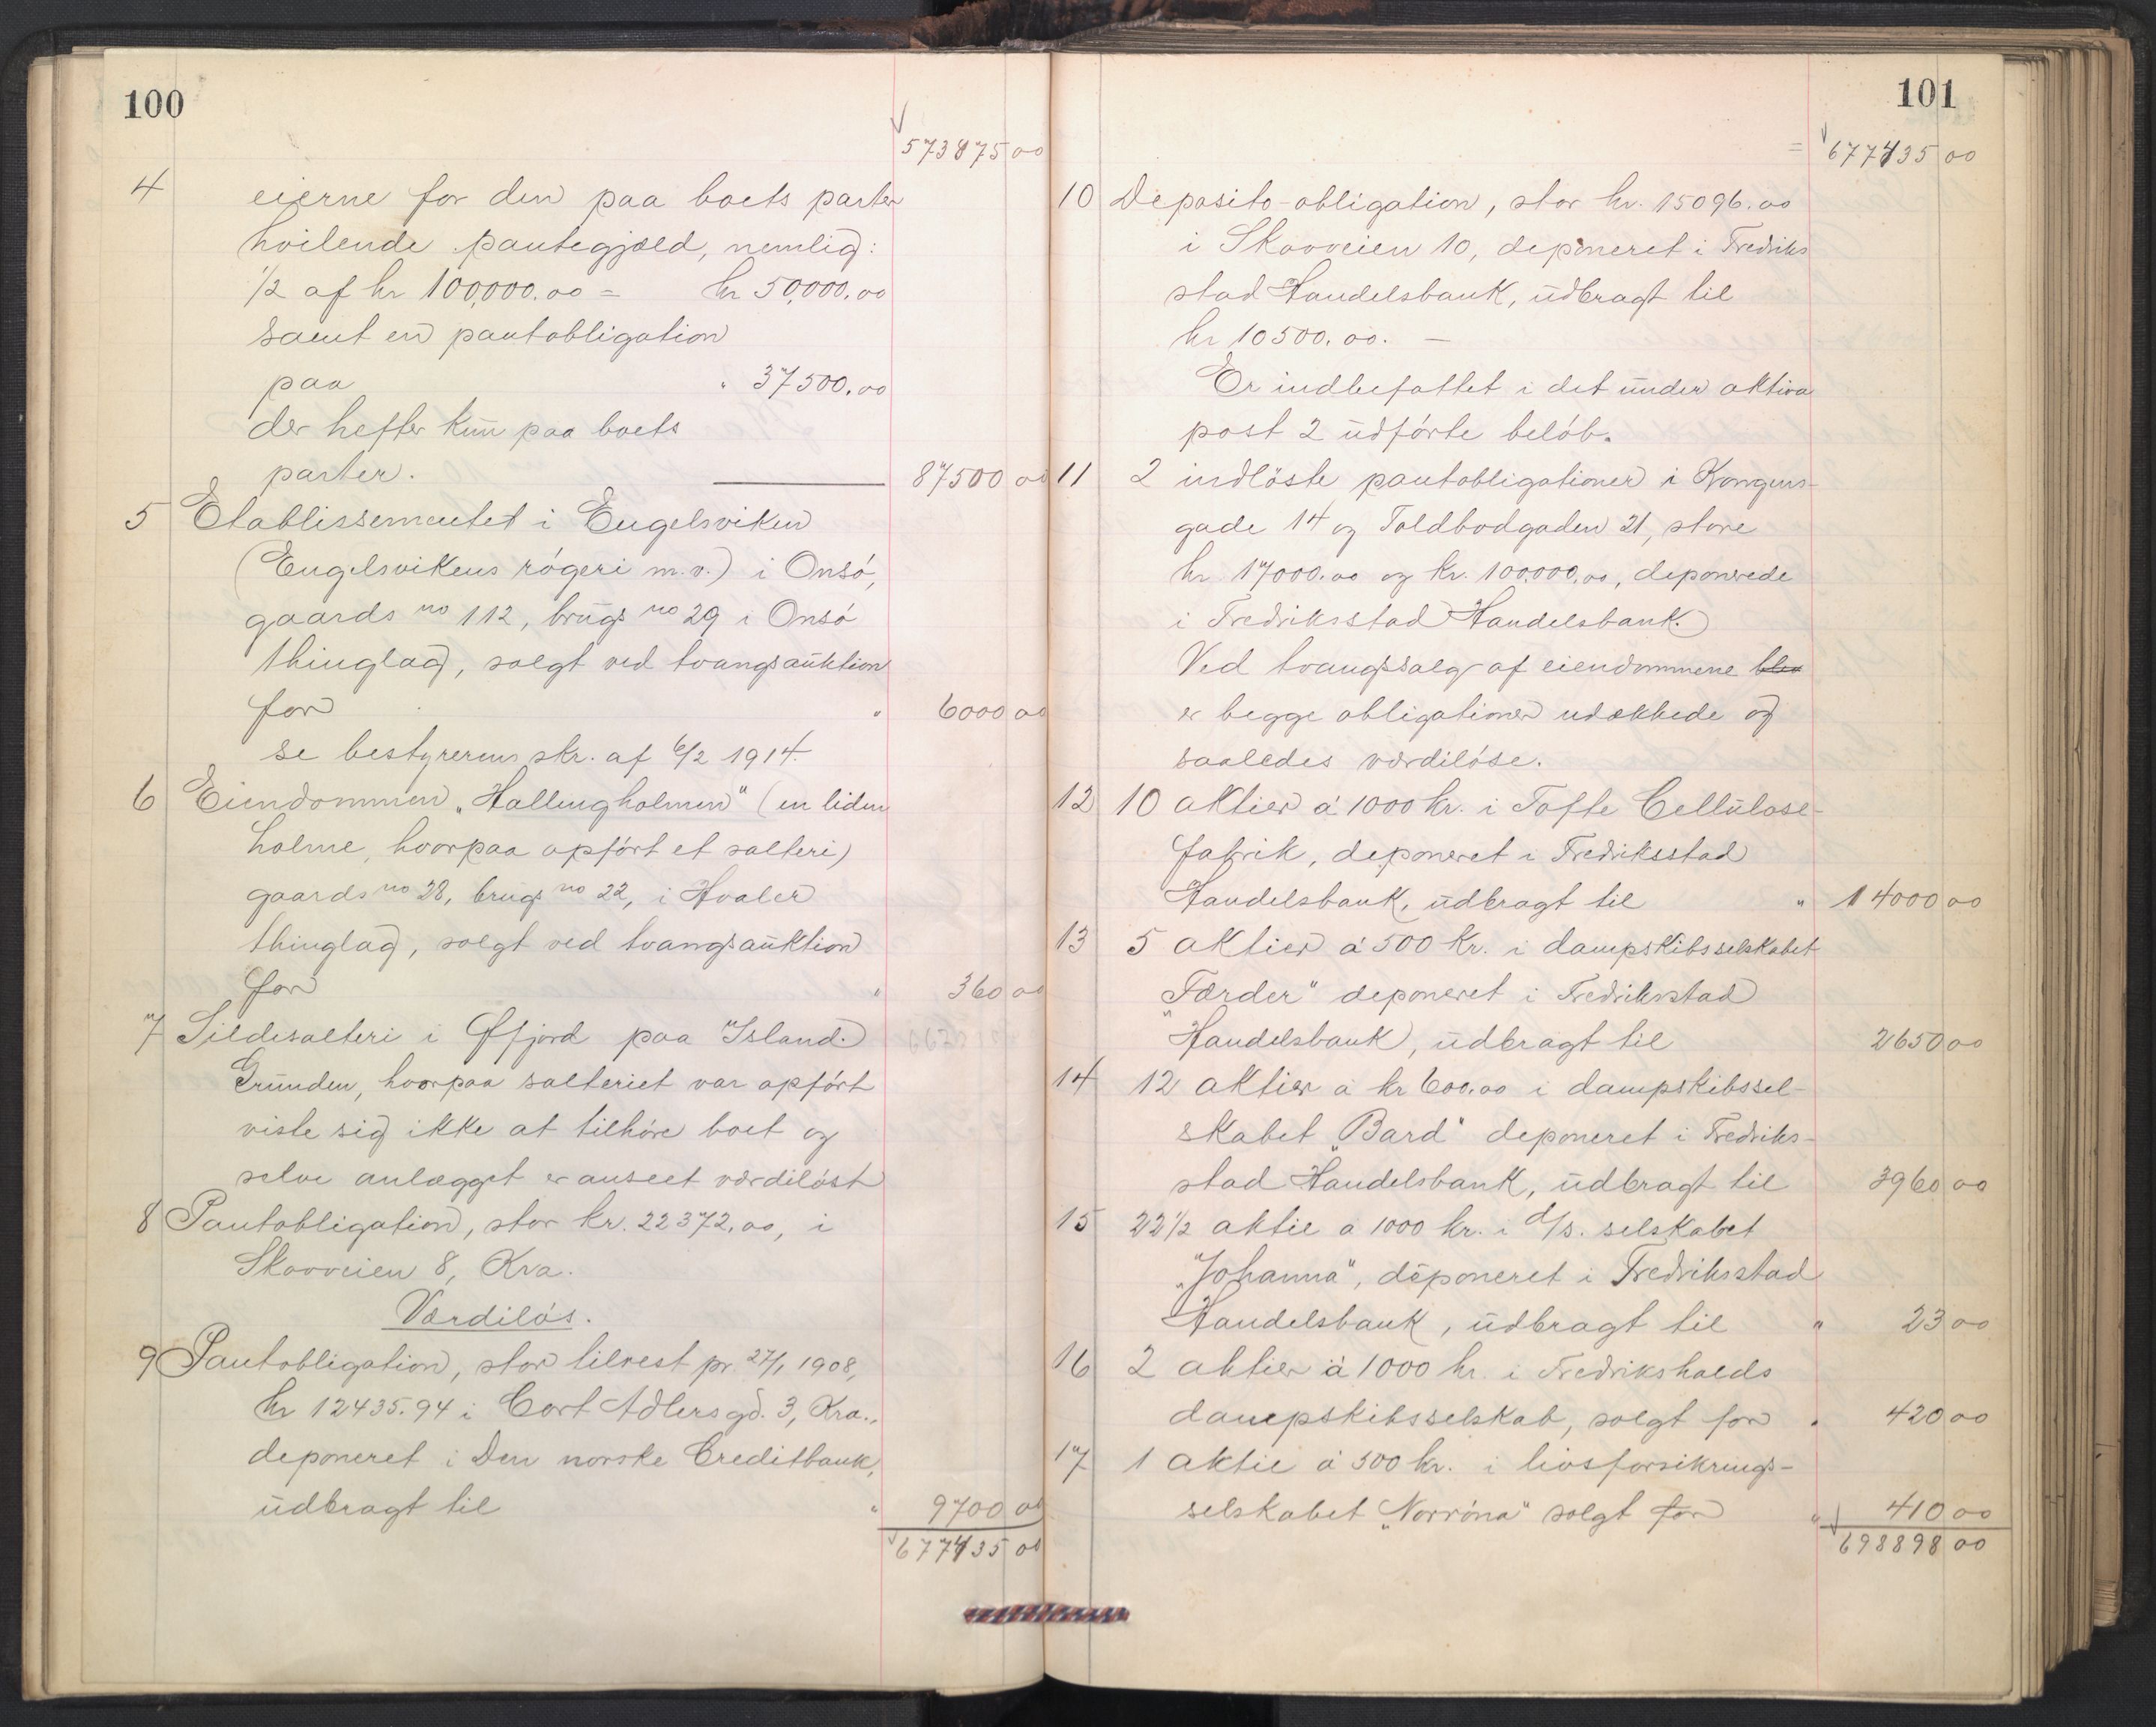 100
573875 00
4 eierne for den paa boets parter
hvilende pantegjæld, nemlig:
1/2 af kr 100,000.00 = kr 50,000.00
samt en pantobligation
paa " 37500.00
der hefter kun paa boets
parter. 87500 00
5 Etablissementet i Engelsviken
(Engelsvikens rögeri m.v.) i Onsö,
gaards no 112, brugs no 29 i Onsö
thinglag, solgt ved tvangsauktion
for " 6000 00
se bestyrerens skr. af 6/2 1914.
6 Eiendommen „Hallingholmen" (en liden
holme, hvorpaa opfört et salteri)
gaards no 28, brugs no 22, i Hvaler
thinglag, solgt ved tvangsauktion
for " 360 00
7 Sildesalteri i Öfjord paa Island.
Grunden, hvorpaa salteriet var opfört
viste sig ikke at tilhöre boet og
selve anlægget er anseet værdilöst
8 Pantobligation, stor kr. 22372.00, i
Skovveien 8, Kra.
Værdilös.
9 Pantobligation, stor tilrest pr. 27/1 1908,
kr 12435.94 i Cort Adlersgd. 3, Kra.,
deponeret i Den norske Creditbank,
udbragt til " 9700 00
677435 00
101
= 677435 00
10 Deposito-obligation, stor kr. 15096.00
i Skovveien 10, deponeret i Fredriks
stad Handelsbank, udbragt til
kr 10500.00. —
Er indbefattet i det under aktiva
post 2 udförte belöb.
11 2 indlöste pantobligationer i Kongens-
gade 14 og Toldbodgaden 21, store
kr 17000.00 og kr. 100.000.00, deponerede
i Fredriksstad Handelsbank.
Ved tvangssalg af eiendommene blev
er begge obligationer udækkede og
saaledes værdilöse.
12 10 aktier á 1000 kr. i Tofte Cellulose-
fabrik, deponeret i Fredriksstad
Handelsbank, udbragt til " 14000 00
13 5 aktier á 500 kr. i dampskibsselskabet
„Færder" deponeret i Fredriksstad
Handelsbank, udbragt til 2650 00
14 12 aktier a kr 600.00 i dampskibssel-
skabet „Bard" deponeret i Fredriks-
stad Handelsbank, udbragt til 3960 00
15 22 1/2 aktie a 1000 kr. i d/s. selskabet
„Johanna", deponeret i Fredriksstad
Handelsbank, udbragt til " 23 00
16 2 aktier á 1000 kr. i Fredrikshalds
dampskibsselskab, solgt for " 420 00
17 1 aktie á 500 kr. i livsforsikrings-
selskabet „Norröna" solgt for " 410 00
698898 00